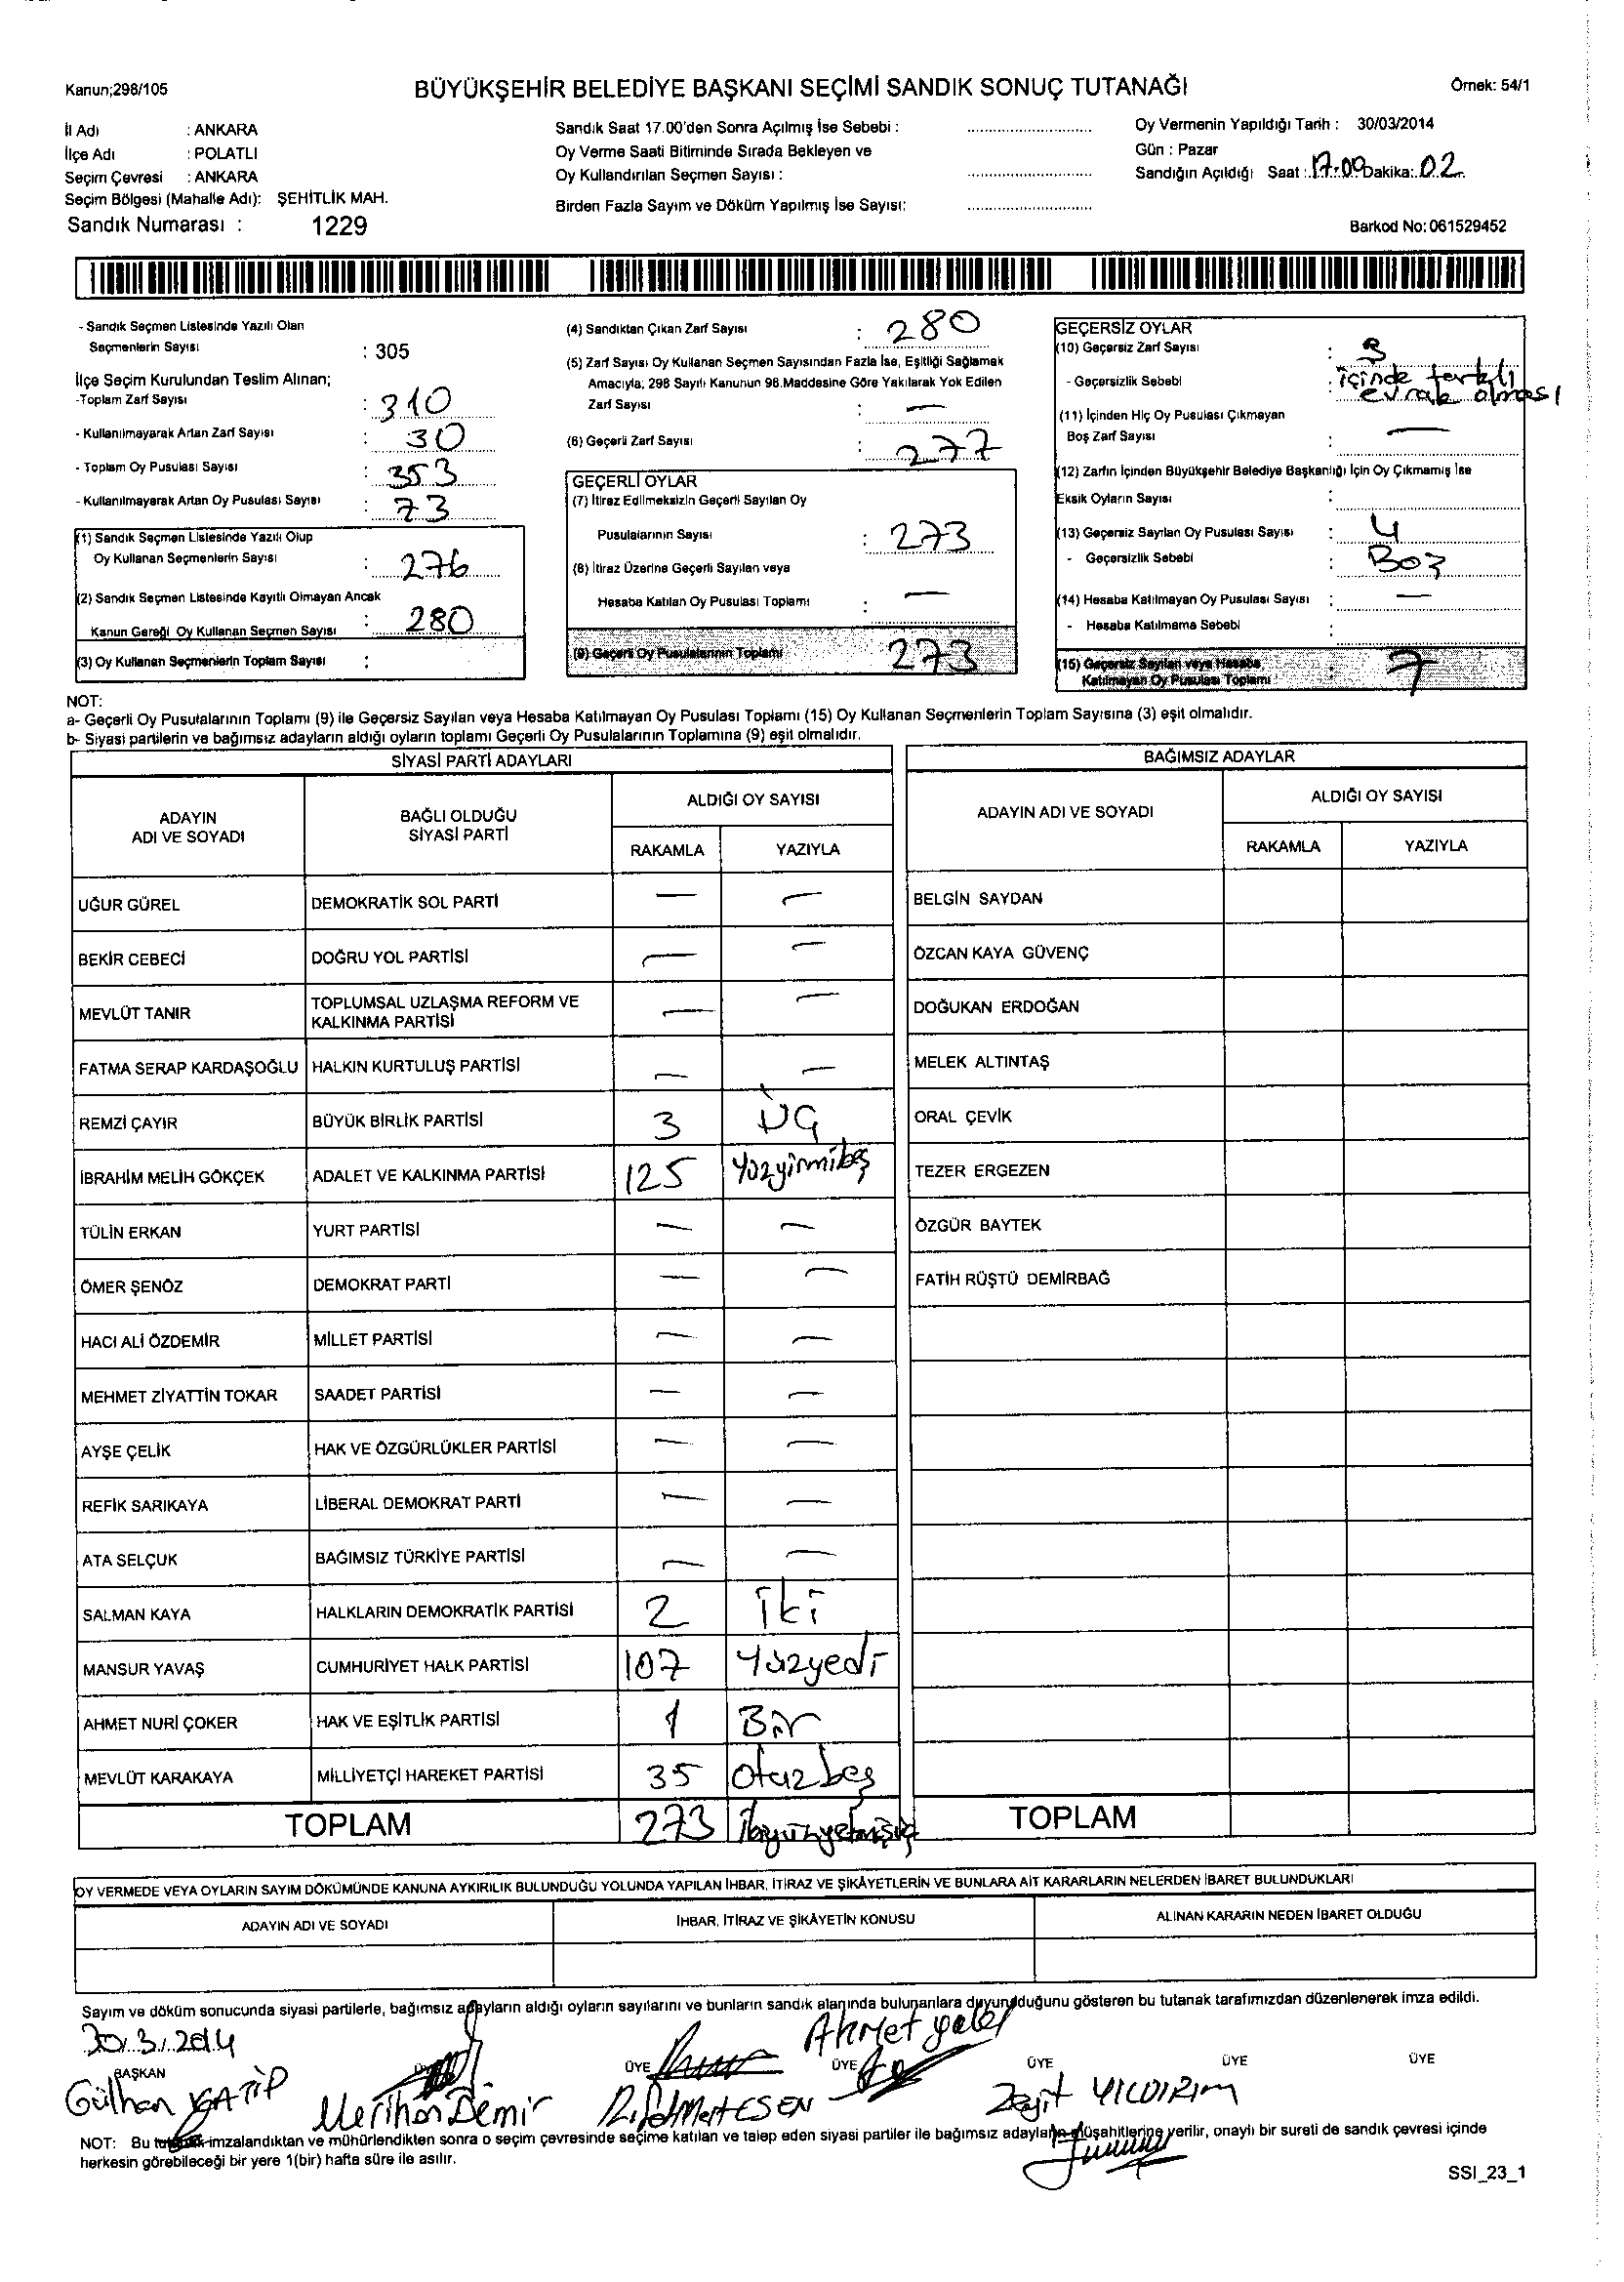 Kanun;298/105
BÜYÜKŞEHİR BELEDİYE BAŞKANI SEÇİMİ SANDIK SONUÇ TUTANAĞI
Örnek: 54/1
İl Adı : ANKARA
İlçe Adı : POLATLI
Seçim Çevresi : ANKARA
Seçim Bölgesi (Mahalle Adı): ŞEHİTLİK MAH.
Sandık Numarası : 1229
Sandık Saat 17.00'den Sonra Açılmış İse Sebebi :
Oy Verme Saati Bitiminde Sırada Bekleyen ve
Oy Kullandırılan Seçmen Sayısı :
Birden Fazla Sayım ve Döküm Yapılmış İse Sayısı:
Oy Vermenin Yapıldığı Tarih : 30/03/2014
Gün : Pazar
Sandığın Açıldığı Saat : 17:00 Dakika: 02
Barkod No: 061529452
- Sandık Seçmen Listesinde Yazılı Olan
Seçmenlerin Sayısı : 305
İlçe Seçim Kurulundan Teslim Alınan;
-Toplam Zarf Sayısı : 310
- Kullanılmayarak Artan Zarf Sayısı : 30
- Toplam Oy Pusulası Sayısı : 353
- Kullanılmayarak Artan Oy Pusulası Sayısı : 73
(1) Sandık Seçmen Listesinde Yazılı Olup
Oy Kullanan Seçmenlerin Sayısı : 276
(2) Sandık Seçmen Listesinde Kayıtlı Olmayan Ancak
Kanun Gereği Oy Kullanan Seçmen Sayısı : 280
(3) Oy Kullanan Seçmenlerin Toplam Sayısı :
(4) Sandıktan Çıkan Zarf Sayısı : 280
(5) Zarf Sayısı Oy Kullanan Seçmen Sayısından Fazla İse, Eşitliği Sağlamak
Amacıyla; 298 Sayılı Kanunun 98.Maddesine Göre Yakılarak Yok Edilen
Zarf Sayısı : —
(6) Geçerli Zarf Sayısı : 277
GEÇERLİ OYLAR
(7) İtiraz Edilmeksizin Geçerli Sayılan Oy
Pusulalarının Sayısı : 273
(8) İtiraz Üzerine Geçerli Sayılan veya
Hesaba Katılan Oy Pusulası Toplamı : —
(9) Geçerli Oy Pusulalarının Toplamı 273
GEÇERSİZ OYLAR
(10) Geçersiz Zarf Sayısı : 3
- Geçersizlik Sebebi : içinde farklı
evrak olması
(11) İçinden Hiç Oy Pusulası Çıkmayan
Boş Zarf Sayısı : —
(12) Zarfın İçinden Büyükşehir Belediye Başkanlığı İçin Oy Çıkmamış İse
Eksik Oyların Sayısı :
(13) Geçersiz Sayılan Oy Pusulası Sayısı : 4
- Geçersizlik Sebebi : Boş
(14) Hesaba Katılmayan Oy Pusulası Sayısı : —
- Hesaba Katılmama Sebebi :
(15) Geçersiz Sayılan veya Hesaba
Katılmayan Oy Pusulası Toplamı : 7
NOT:
a- Geçerli Oy Pusulalarının Toplamı (9) ile Geçersiz Sayılan veya Hesaba Katılmayan Oy Pusulası Toplamı (15) Oy Kullanan Seçmenlerin Toplam Sayısına (3) eşit olmalıdır.
b- Siyasi partilerin ve bağımsız adayların aldığı oyların toplamı Geçerli Oy Pusulalarının Toplamına (9) eşit olmalıdır.
SİYASİ PARTİ ADAYLARI
ADAYIN ADI VE SOYADI BAĞLI OLDUĞU SİYASİ PARTİ ALDIĞI OY SAYISI
RAKAMLA YAZIYLA
UĞUR GÜREL DEMOKRATİK SOL PARTİ — —
BEKİR CEBECİ DOĞRU YOL PARTİSİ — —
MEVLÜT TANIR TOPLUMSAL UZLAŞMA REFORM VE KALKINMA PARTİSİ — —
FATMA SERAP KARDAŞOĞLU HALKIN KURTULUŞ PARTİSİ — —
REMZİ ÇAYIR BÜYÜK BİRLİK PARTİSİ 3 ÜÇ
İBRAHİM MELİH GÖKÇEK ADALET VE KALKINMA PARTİSİ 125 Yüzyirmibeş
TÜLİN ERKAN YURT PARTİSİ — —
ÖMER ŞENÖZ DEMOKRAT PARTİ — —
HACI ALİ ÖZDEMİR MİLLET PARTİSİ — —
MEHMET ZİYATTİN TOKAR SAADET PARTİSİ — —
AYŞE ÇELİK HAK VE ÖZGÜRLÜKLER PARTİSİ — —
REFİK SARIKAYA LİBERAL DEMOKRAT PARTİ — —
ATA SELÇUK BAĞIMSIZ TÜRKİYE PARTİSİ — —
SALMAN KAYA HALKLARIN DEMOKRATİK PARTİSİ 2 İki
MANSUR YAVAŞ CUMHURİYET HALK PARTİSİ 107 Yüzyedi
AHMET NURİ ÇOKER HAK VE EŞİTLİK PARTİSİ 1 Bir
MEVLÜT KARAKAYA MİLLİYETÇİ HAREKET PARTİSİ 35 Otuzbeş
TOPLAM 273 İkiyüzyetmişüç
BAĞIMSIZ ADAYLAR
ADAYIN ADI VE SOYADI ALDIĞI OY SAYISI
RAKAMLA YAZIYLA
BELGİN SAYDAN
ÖZCAN KAYA GÜVENÇ
DOĞUKAN ERDOĞAN
MELEK ALTINTAŞ
ORAL ÇEVİK
TEZER ERGEZEN
ÖZGÜR BAYTEK
FATİH RÜŞTÜ DEMİRBAĞ
TOPLAM
OY VERMEDE VEYA OYLARIN SAYIM DÖKÜMÜNDE KANUNA AYKIRILIK BULUNDUĞU YOLUNDA YAPILAN İHBAR, İTİRAZ VE ŞİKÂYETLERİN VE BUNLARA AİT KARARLARIN NELERDEN İBARET BULUNDUKLARI
ADAYIN ADI VE SOYADI İHBAR, İTİRAZ VE ŞİKÂYETİN KONUSU ALINAN KARARIN NEDEN İBARET OLDUĞU
Sayım ve döküm sonucunda siyasi partilerle, bağımsız adayların aldığı oyların sayılarını ve bunların sandık alanında bulunanlara duyurulduğunu gösteren bu tutanak tarafımızdan düzenlenerek imza edildi.
30.3.2014 Ahmet
BAŞKAN ÜYE ÜYE ÜYE ÜYE ÜYE
Gülhan KATİP Merihan Demir ESEN YILDIRIM
NOT: Bu tutanak imzalandıktan ve mühürlendikten sonra o seçim çevresinde seçime katılan ve talep eden siyasi partiler ile bağımsız adayların müşahitlerine verilir, onaylı bir sureti de sandık çevresi içinde
herkesin görebileceği bir yere 1(bir) hafta süre ile asılır.
SSI_23_1